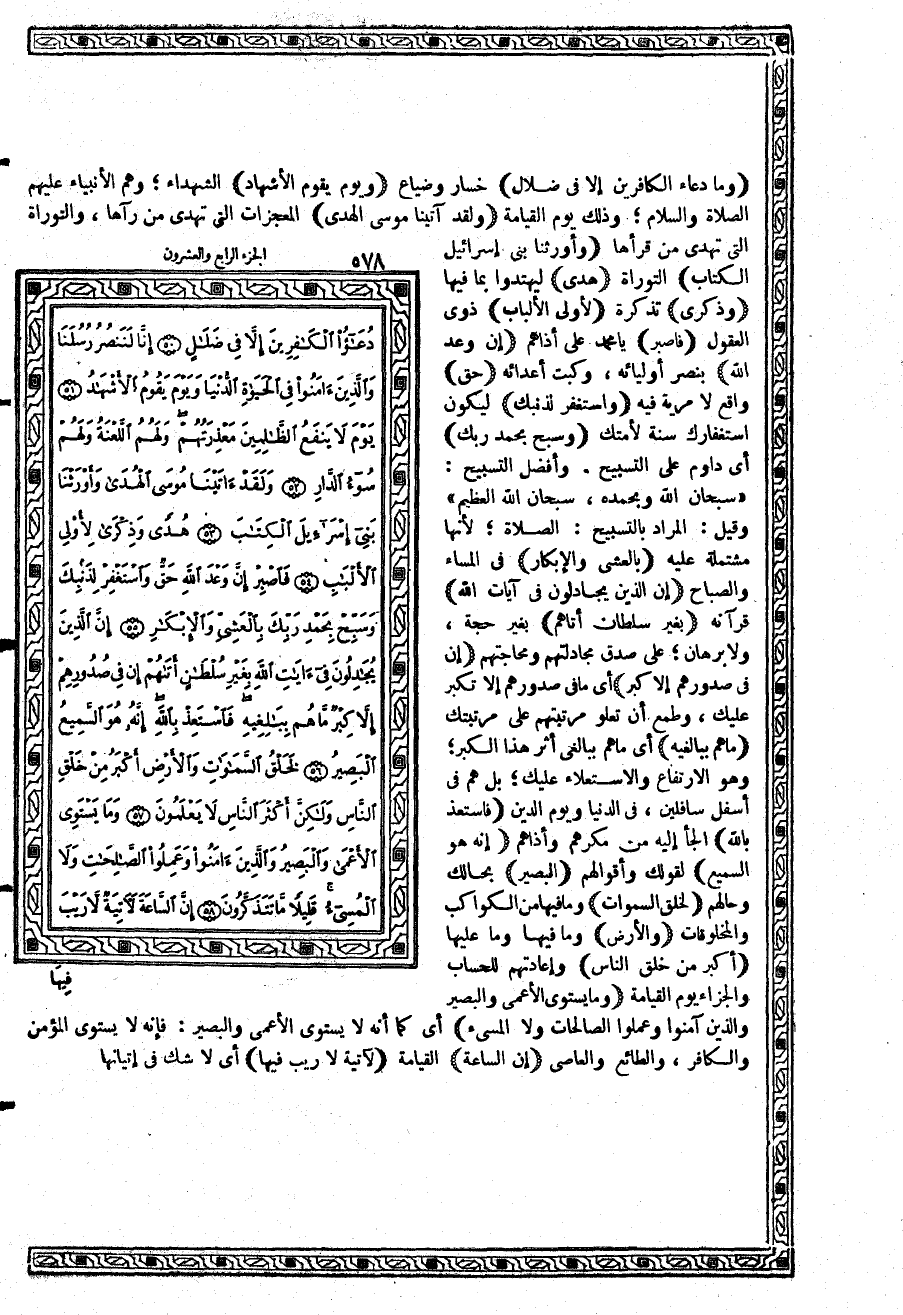 (وما دعاء الكافرين إلا فى ضـلال) خسار وضياع (ويوم يقوم الأشهاد) الشهداء ؛ وهم الأنبياء عليهم
الصلاة والسلام ؛ وذلك يوم القيامة (ولقد آتينا موسى الهدى) المعجزات التى تهدى من رآها ، والتوراة
التى تهدى من قرأها (وأورثنا بنى إسرائيل
الكتاب) التوراة (هدى) ليهتدوا بما فيها
(وذكرى) تذكرة (لأولى الألباب) ذوى
العقول (فاصبر) يامحمد على أذاهم (إن وعد
الله) بنصر أوليائه ، وكبت أعدائه (حق)
واقع لا مرية فيه (واستغفر لذنبك) ليكون
استغفارك سنة لأمتك (وسبح بحمد ربك)
أى داوم على التسبيح . وأفضل التسبيح :
«سبحان الله وبحمده ، سبحان الله العظيم»
وقيل : المراد بالتسبيح : الصـلاة ؛ لأنها
مشتملة عليه (بالعشى والإبكار) فى المساء
والصباح (إن الذين يجـادلون فى آيات الله)
قرآنه (بغير سلطان أتاهم) بغير حجة ،
ولابرهان ؛ على صدق مجادلتهم ومحاجتهم (إن
فى صدورهم إلا كبر)أى مافى صدورهم إلا تكبر
عليك ، وطمع أن تعلو مرتبتهم على مرتبتك
(ماهم ببالغيه) أى ماهم ببالغى أثر هذا الكبر؛
وهو الارتفاع والاسـتعلاء عليك ؛ بل هم فى
أسفل سافلين ، فى الدنيا ويوم الدين (فاستعذ
بالله) الجأ إليه من مكرهم وأذاهم ( إنه هو
السميع) لقولك وأقوالهم (البصير) بحـالك
وحالهم (لخلق السموات) ومافيهامن الكواكب
والمخلوقات (والأرض) وما فيهـا وما عليها
(أكبر من خلق الناس) وإعادتهم للحساب
والجزاء يوم القيامة (ومايستوى الأعمى والبصير
والذين آمنوا وعملوا الصالحات ولا المسىء) أى كما أنه لا يستوى الأعمى والبصير : فإنه لا يستوى المؤمن
والكافر ، والطائع والعاصى (إن الساعة) القيامة (لآتية لا ريب فيها) أى لا شك فى إتيانها
الجزء الرابع والعشرون ٥٧٨
دُعَٰٓؤُا۟ ٱلۡكَٰفِرِينَ إِلَّا فِى ضَلَٰلٍ ۝٥٠ إِنَّا لَنَنصُرُ رُسُلَنَا
وَٱلَّذِينَ ءَامَنُوا۟ فِى ٱلۡحَيَوٰةِ ٱلدُّنۡيَا وَيَوۡمَ يَقُومُ ٱلۡأَشۡهَٰدُ ۝٥١
يَوۡمَ لَا يَنفَعُ ٱلظَّٰلِمِينَ مَعۡذِرَتُهُمۡۖ وَلَهُمُ ٱللَّعۡنَةُ وَلَهُمۡ
سُوٓءُ ٱلدَّارِ ۝٥٢ وَلَقَدۡ ءَاتَيۡنَا مُوسَى ٱلۡهُدَىٰ وَأَوۡرَثۡنَا
بَنِىٓ إِسۡرَٰٓءِيلَ ٱلۡكِتَٰبَ ۝٥٣ هُدًى وَذِكۡرَىٰ لِأُو۟لِى
ٱلۡأَلۡبَٰبِ ۝٥٤ فَٱصۡبِرۡ إِنَّ وَعۡدَ ٱللَّهِ حَقٌّ وَٱسۡتَغۡفِرۡ لِذَنۢبِكَ
وَسَبِّحۡ بِحَمۡدِ رَبِّكَ بِٱلۡعَشِىِّ وَٱلۡإِبۡكَٰرِ ۝٥٥ إِنَّ ٱلَّذِينَ
يُجَٰدِلُونَ فِىٓ ءَايَٰتِ ٱللَّهِ بِغَيۡرِ سُلۡطَٰنٍ أَتَىٰهُمۡ إِن فِى صُدُورِهِمۡ
إِلَّا كِبۡرٌ مَّا هُم بِبَٰلِغِيهِۖ فَٱسۡتَعِذۡ بِٱللَّهِۖ إِنَّهُۥ هُوَ ٱلسَّمِيعُ
ٱلۡبَصِيرُ ۝٥٦ لَخَلۡقُ ٱلسَّمَٰوَٰتِ وَٱلۡأَرۡضِ أَكۡبَرُ مِنۡ خَلۡقِ
ٱلنَّاسِ وَلَٰكِنَّ أَكۡثَرَ ٱلنَّاسِ لَا يَعۡلَمُونَ ۝٥٧ وَمَا يَسۡتَوِى
ٱلۡأَعۡمَىٰ وَٱلۡبَصِيرُ وَٱلَّذِينَ ءَامَنُوا۟ وَعَمِلُوا۟ ٱلصَّٰلِحَٰتِ وَلَا
ٱلۡمُسِىٓءُۚ قَلِيلًا مَّا تَتَذَكَّرُونَ ۝٥٨ إِنَّ ٱلسَّاعَةَ لَءَاتِيَةٌ لَّا رَيۡبَ
فِيهَا